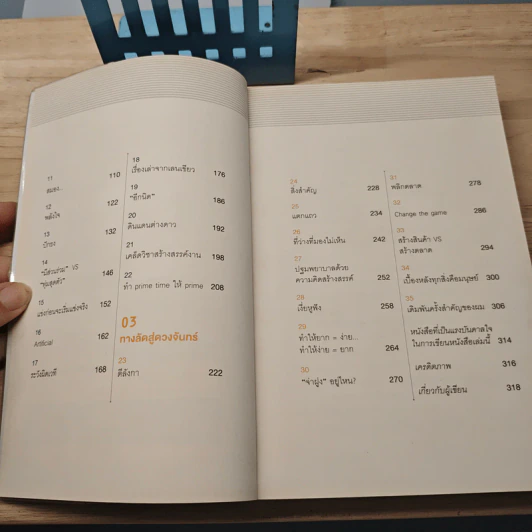 11
สมอง... 110
12
พลังใจ 122
13
ปักธง 132
14
"มิตรเก่าแก่" VS
146
15
แรงก่อนจะเริ่มแข่งจริง 152
16
Artificial 162
17
ระวังผิดเวที 168
18
เรื่องเล่าจากเลนเขียว 176
19
"อีกนิด" 186
20
ดินแดนต่างดาว 192
21
เคล็ดวิชาสร้างสรรค์งาน 198
22
ทำ prime time ให้ prime 208
03
ทางลัดสู่ดวงจันทร์
23
ตีลังกา 222
24
สิ่งสำคัญ 228
25
แตกแถว 234
26
ที่ว่างที่มองไม่เห็น 242
27
ปฐมพยาบาลด้วย
ความคิดสร้างสรรค์ 252
28
เงี่ยหูฟัง 258
29
ทำให้ยาก = ง่าย...
ทำให้ง่าย = ยาก 264
30
"จ่าฝูง" อยู่ไหน? 270
31
พลิกตลาด 278
32
Change the game 286
33
สร้างสินค้า VS
สร้างตลาด 294
34
เบื้องหลังทุกสิ่งคือมนุษย์ 300
35
เดิมพันครั้งสำคัญของผม 306
หนังสือที่เป็นแรงบันดาลใจ
ในการเขียนหนังสือเล่มนี้ 314
เครดิตภาพ 316
เกี่ยวกับผู้เขียน 318